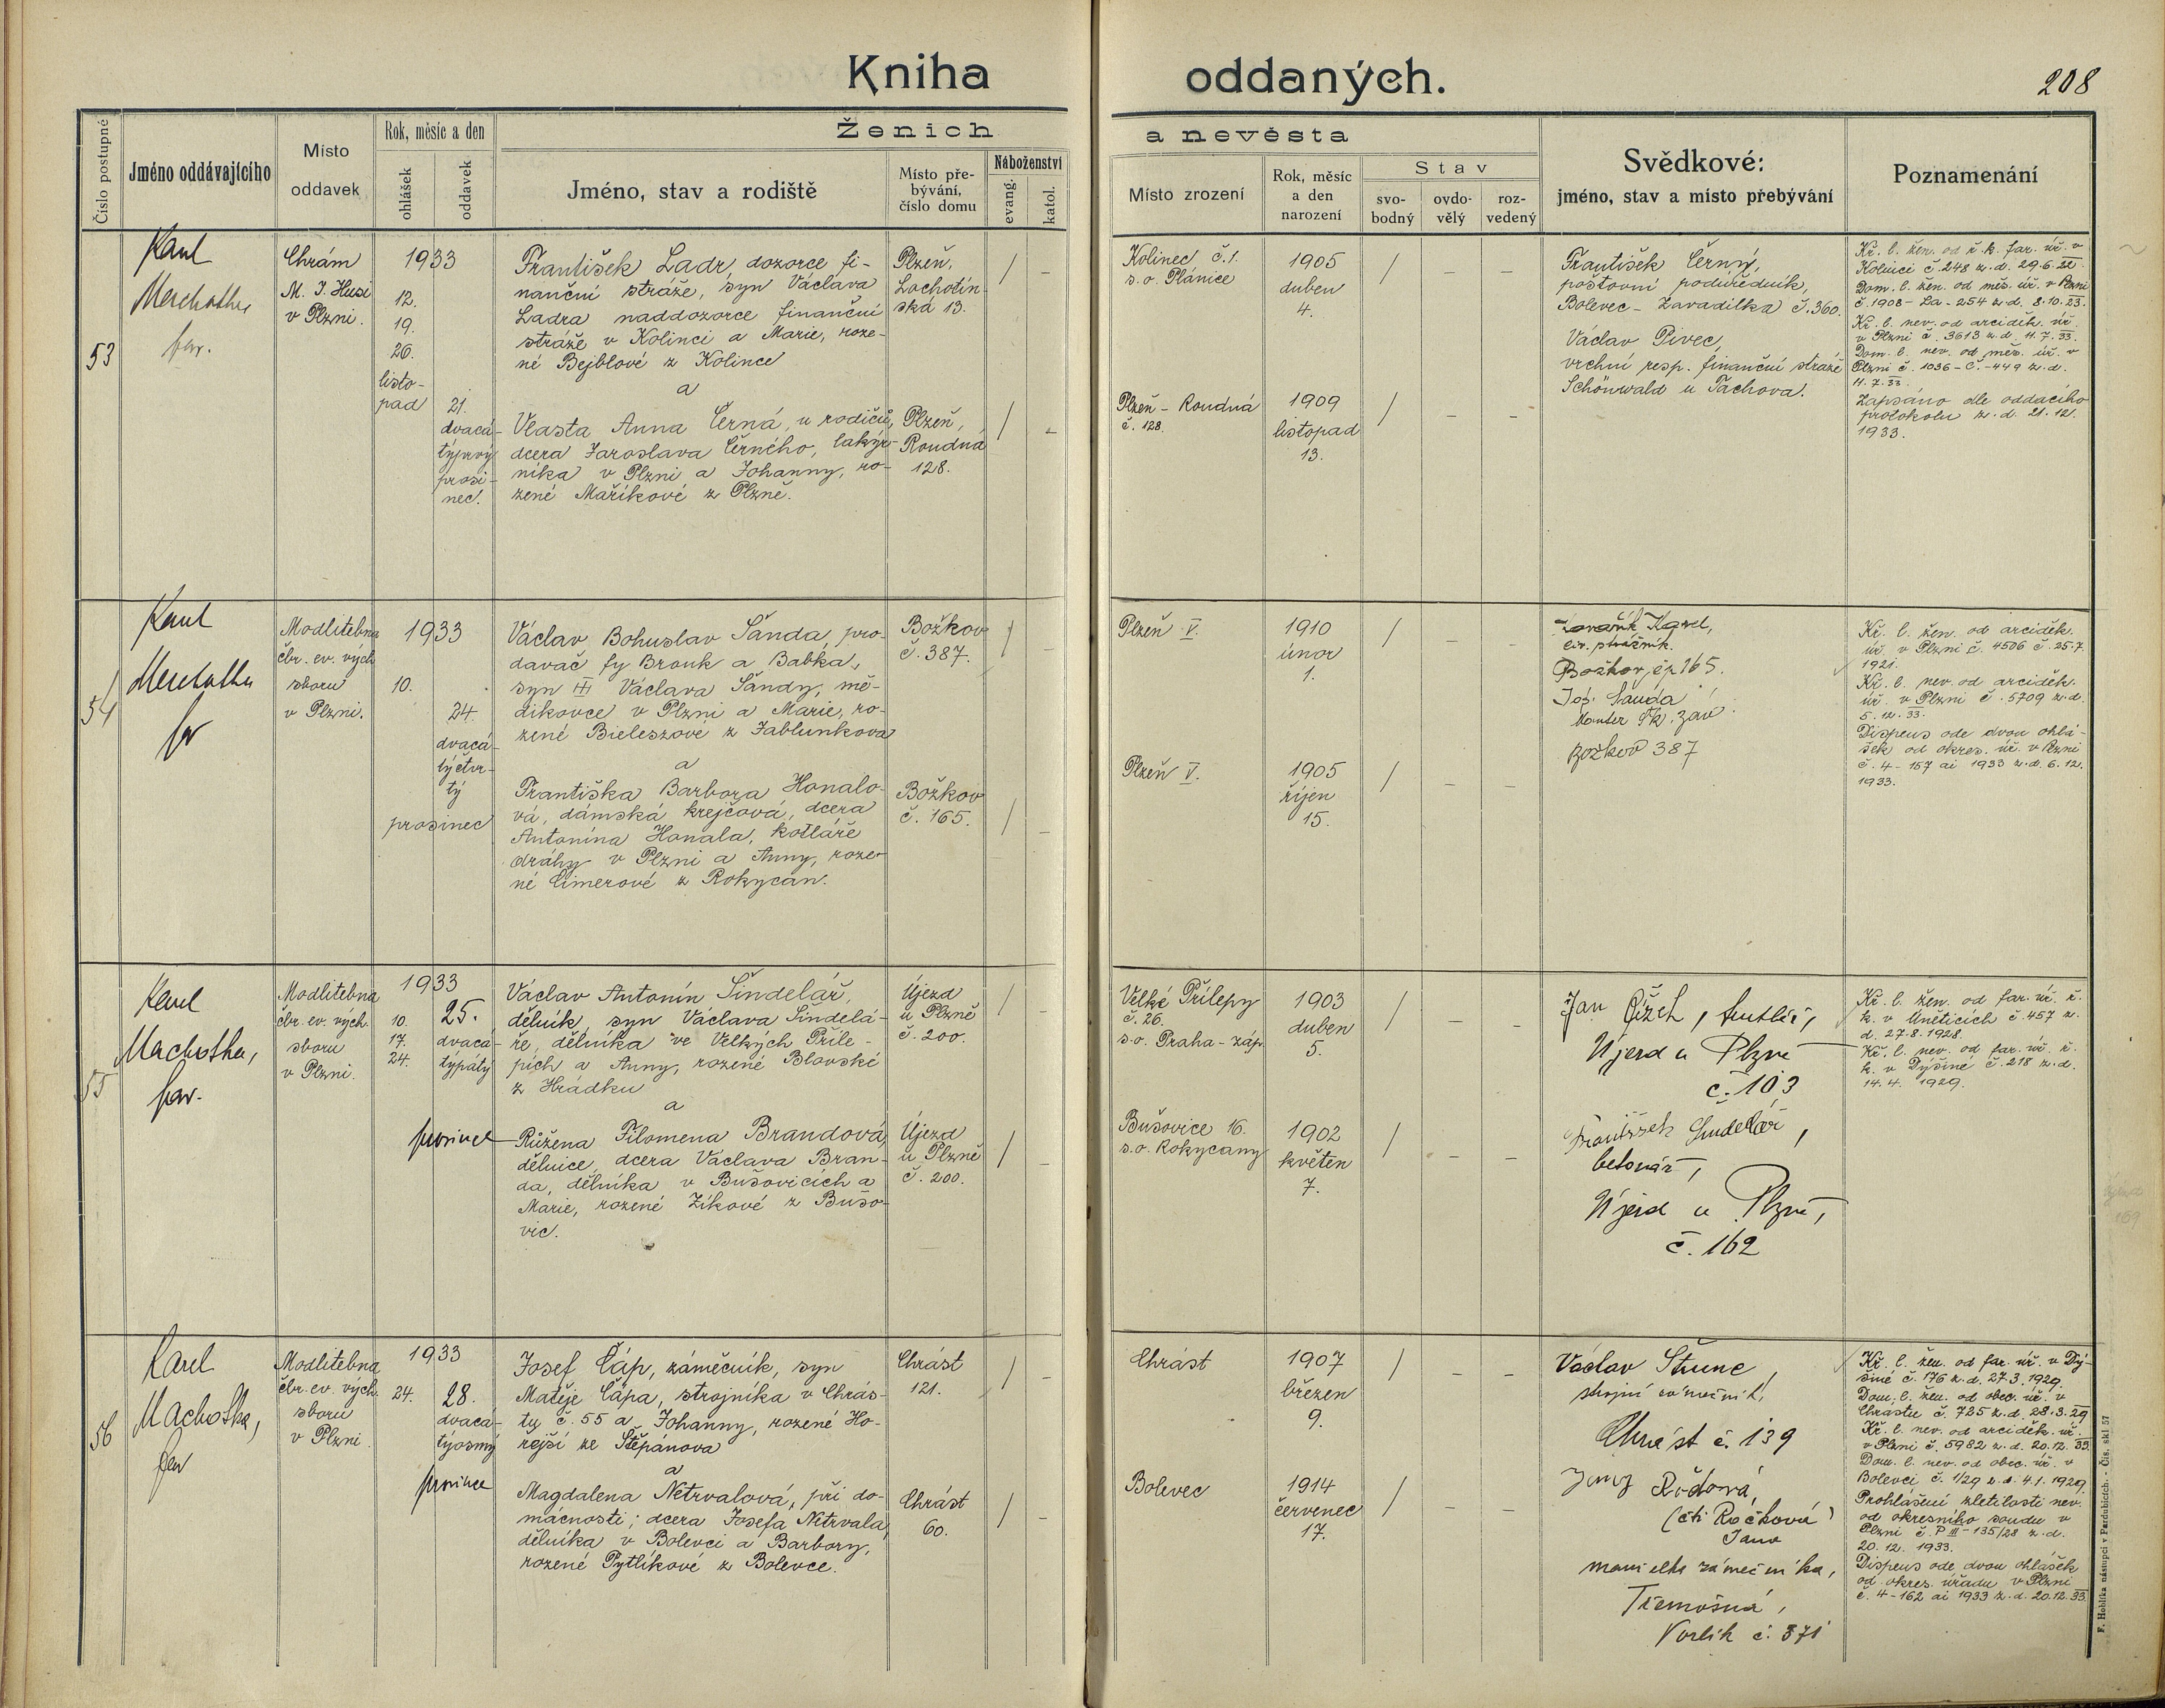 Kniha oddaných.
208
Číslo postupné
Jméno oddávajícího
Místo oddavek
Rok, měsíc a den
ohlášek
oddavek
Ženich a nevěsta
Jméno, stav a rodiště
Místo pře-
bývání,
číslo domu
Náboženství
evang.
katol.
Místo zrození
Rok, měsíc
a den
narození
Stav
svo-
bodný
ovdo-
vělý
roz-
vedený
Svědkové:
jméno, stav a místo přebývání
Poznamenání
53
Karel
Machotka
far.
Chrám
M. J. Husi
v Plzni.
1933
12.
19.
26.
listo-
pad
21.
dvacá-
týprvý
prosi-
nec.
František Ladr, dozorce fi-
nanční stráže, syn Václava
Ladra naddozorce finanční
stráže v Kolinci a Marie, roze-
né Bejblové z Kolince
a
Vlasta Anna Černá, u rodičů,
dcera Jaroslava Černého, lakýr-
níka v Plzni a Johanny, ro-
zené Maříkové z Plzně.
Plzeň,
Lochotín-
ská 13.
Plzeň,
Roudná
128.
Kolinec č.1.
s.o. Plánice
1905
duben
4.
Plzeň - Roudná
č. 128.
1909
listopad
13.
František Černý,
poštovní podúředník,
Bolevec - Zavadilka č.360.
Václav Pivec,
vrchní resp. finanční stráže
Schönwald u Tachova.
Kř. l. žen. od ř.k. far. úř. v
Kolinci č.248 z.d. 29.6.32.
Dom. l. žen. od měs. úř. v Plzni
č.1908 - La - 254 z.d. 8.10.23.
Kř. l. nev. od arciděk. úř.
v Plzni č. 3613 z.d. 11.7.33.
Dom. l. nev. od měs. úř. v
Plzni č. 1036 - Č. - 449 z.d.
11.7.33.
Zapsáno dle oddacího
protokolu z.d. 21.12.
1933.
54
Karel
Machotka
far
Modlitebna
čbr. ev. vých
sboru
v Plzni.
1933
10.
24.
dvacá-
týčtvr-
tý
prosinec
Václav Bohuslav Šanda, pro-
davač fy Brouk a Babka,
syn Václava Šandy, mě-
dikovce v Plzni a Marie, ro-
zené Bieleszové z Jablunkova
a
Františka Barbora Honalo-
vá, dámská krejčová, dcera
Antonína Honala, kotláře
dráhy v Plzni a Anny, roze-
né Cimerové z Rokycan.
Božkov
č. 387.
Božkov
č. 165.
Plzeň V.
1910
únor
1.
Plzeň V.
1905
říjen
15.
Karel,
Božkov, čp 165.
Jos. Šanda
Monter Šk. záv.
Božkov 387
Kř. l. žen. od arciděk.
úř. v Plzni č. 4506 č. 25.7.
1921.
Kř. l. nev. od arciděk.
úř. v Plzni č. 5709 z.d.
5.12.33.
Dispens ode dvou ohlá-
šek od okres. úř. v Plzni
č. 4 - 157 ai 1933 z.d. 6.12.
1933.
55
Karel
Machotka,
far.
Modlitebna
čbr. ev. vých.
sboru
v Plzni.
1933
10.
17.
24.
25.
dvacá-
týpátý
prosinec
Václav Antonín Šindelář,
dělník, syn Václava Šindelá-
ře, dělníka ve Velkých Příle-
pích a Anny, rozené Blovské
z Hrádku
a
Růžena Filomena Brandová,
dělnice, dcera Václava Bran-
da, dělníka v Bušovicích a
Marie, rozené Zíkové z Bušo-
vic.
Újezd
u Plzně
č. 200.
Újezd
u Plzně
č. 200.
Velké Přílepy
č. 26.
s.o. Praha - záp.
1903
duben
5.
Bušovice 16.
s.o. Rokycany
1902
květen
7.
Jan Čížek,
Újezd u Plzně
č. 103
František Šindelář,
betonář,
Újezd u Plzně,
č. 162
Kř. l. žen. od far. úř. ř.
k. v Úněticích č. 457 z.
d. 27.8.1928.
Kř. l. nev. od far. úř. ř.
k. v Dýšině č. 218 z.d.
14.4. 1929.
56
Karel
Machotka,
far
Modlitebna
čbr. ev. vých.
sboru
v Plzni.
1933
24.
28.
dvacá-
týosmý
prosinec
Josef Čáp, zámečník, syn
Matěje Čápa, strojníka v Chrás-
tu č. 55 a Johanny, rozené Ho-
rejší ze Štěpánova
a
Magdalena Netrvalová, při do-
mácnosti; dcera Josefa Netrvala,
dělníka v Bolevci a Barbory,
rozené Pytlíkové z Bolevce.
Chrást
121.
Chrást
60.
Chrást
1907
březen
9.
Bolevec
1914
červenec
17.
Václav Štrunc,
strojní zámečník,
Chrást č. 139
(čti Ročková
Jana
manželka zámečníka,
Třemošná,
Vorlík č. 371
Kř. l. žen. od far. úř. v Dý-
šině č. 176 z.d. 27.3.1929.
Dom. l. žen. od obec. úř. v
Chrástu č. 725 z.d. 28.3.29
Kř. l. nev. od arciděk. úř.
v Plzni č. 5982 z.d. 20.12.33.
Dom. l. nev. od obec. úř. v
Bolevci č. 1/29 z.d. 4.1.1929.
Prohlášení zletilosti nev.
od okresního soudu v
Plzni č. P III - 135/28 z.d.
20.12. 1933.
Dispens ode dvou ohlášek
od okres. úřadu v Plzni
č. 4 - 162 ai 1933 z.d. 20.12.33.
F. Hoblíka nástupci v Pardubicích. - Čís. skl 57